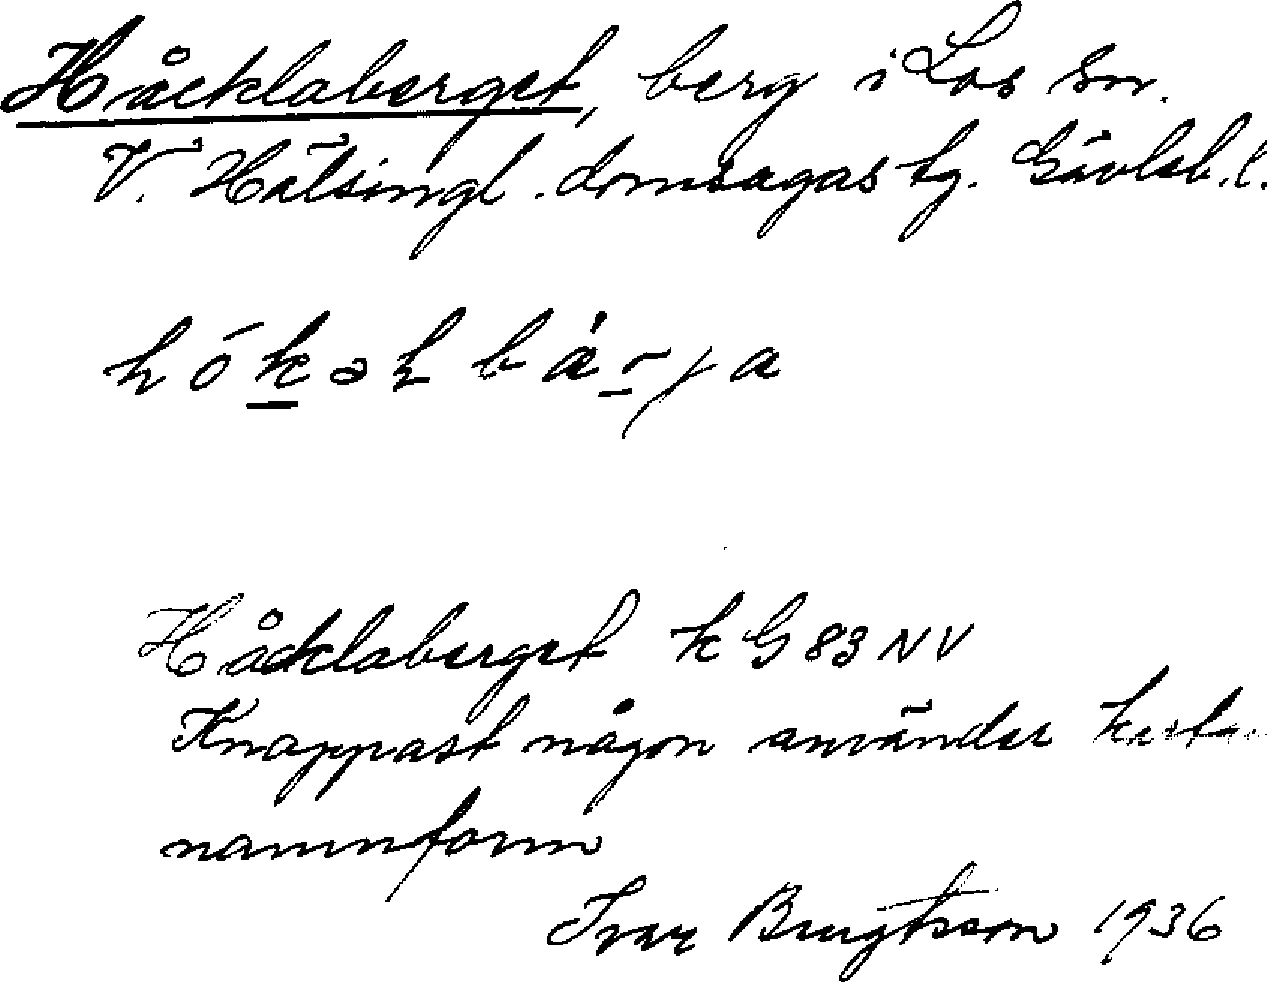 Håcklaberget, berg i Los sn.
V. Hälsingl. domsagas tg. Gävleb. l.
hókəlbárja
Håcklaberget k G 83 NV
Knappast någon använder
namnform
Ivar Bengtsson 1936